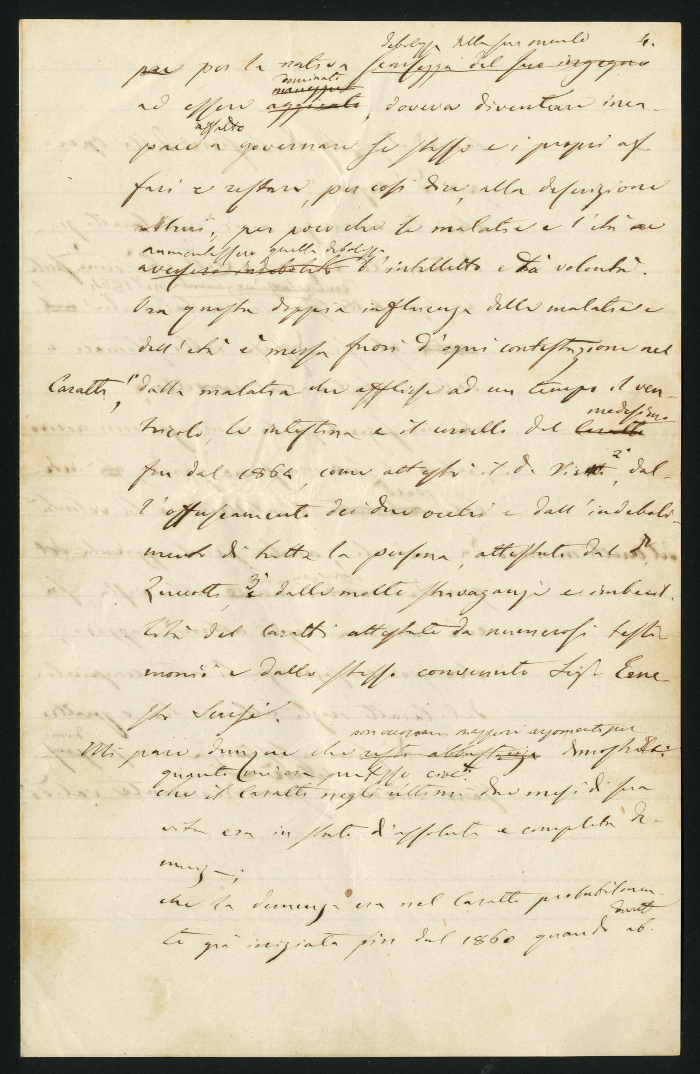 4.
debolezza della sua mente
pae per la nativa scarsezza del suo ingegno
dominato
ad essere aggirato, doveva diventare inca-
affatto
pace a governare se stesso e i propri af
fari e restare, per così dire, alla discrizione
altrui, per poco che le malatie e l'età ne
aumentassero quella debolezza
avessero indebolito d'intelletto e di volontà.
Ora questa doppia influenza della malatia e
dell'età è messa fuori d'ogni contestazione nel
Casatti, 1° dalla malatia che afflisse ad un tempo il ven-
medesimo
tricolo, le intestina e il cervello del Casatti
fin dal 1862, come attesta il dr 2° dal-
l'offuscamento dei due occhi e dall'indeboli-
mento di tutta la persona, attestato dal Dr
Zuccotti, 3° e dalle molte stravaganze e imbecil-
lità del Casatti attestate da numerosi testi
monii e dallo stesso convenuto Sigr Erne
sto
non occorrano maggiori argomenti per
Mi pare dunque che resti abbastanza
quanto
che il Casatti negli ultimi due mesi di sua
vita era in stato d'assoluta e completa de-
menza;
che la demenza era nel Casatti probabilmen-
te già iniziata fin dal 1860 quando ab-